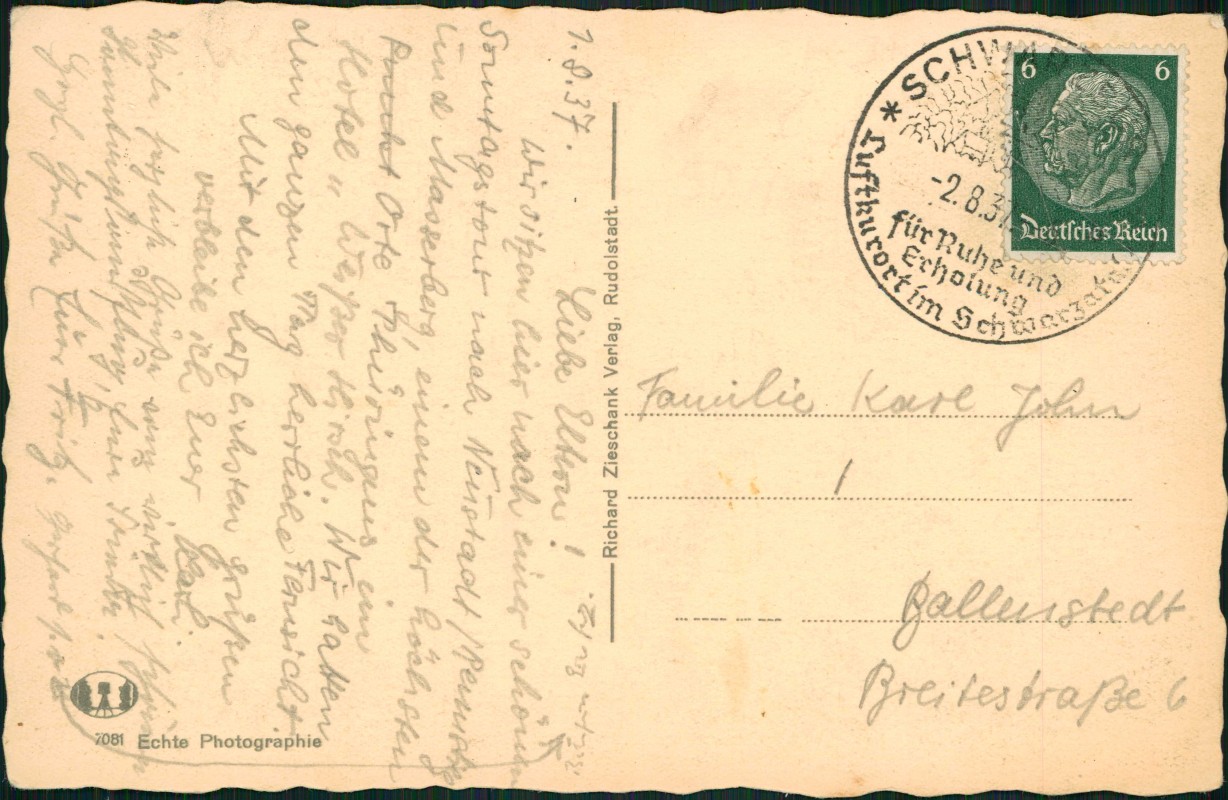 1.8.37.
Liebe Eltern!
Wir sitzen hier nach einer schönen
Sonntagstour nach Neustadt/Rennstg
und Masserberg, einem der höchsten
Orte Thüringens im
Hotel „Weißer Hirsch. Wir hatten
den ganzen Tag herrliche Fernsicht.
Mit den herzlichsten Grüßen
verbleibe ich Euer Karl.
Viele herzliche Grüße von
Eure
Herzl. Grüße Euer Fritz.
Richard Zieschank Verlag, Rudolstadt.
7081 Echte Photographie
* SCHW
Luftkurort im Schwarzatal
-2.8.37
für Ruhe und
Erholung
6 6
Deutsches Reich
Familie Karl John
Ballenstedt.
Breitestraße 6